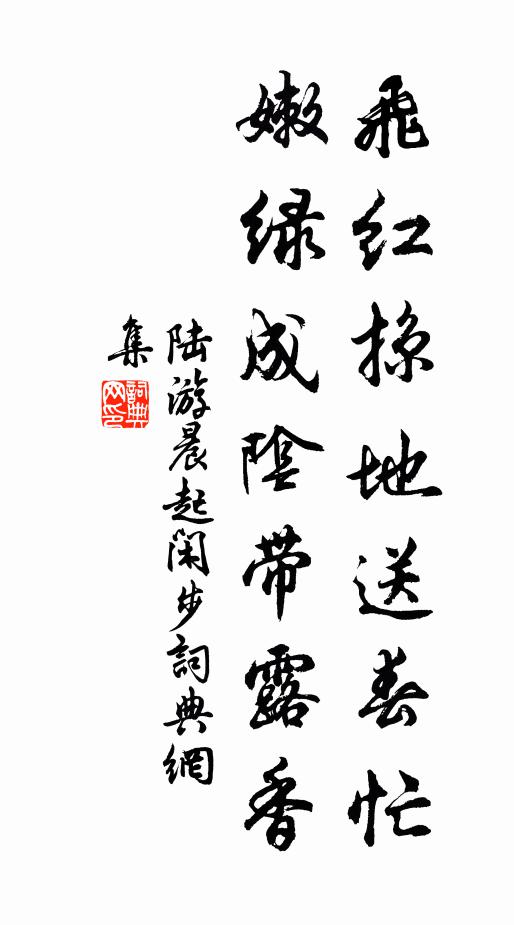 飛紅掠地送春忙
嫩绿成陰帶露香
陆游晨起閑步詞典網
集
詞典网印